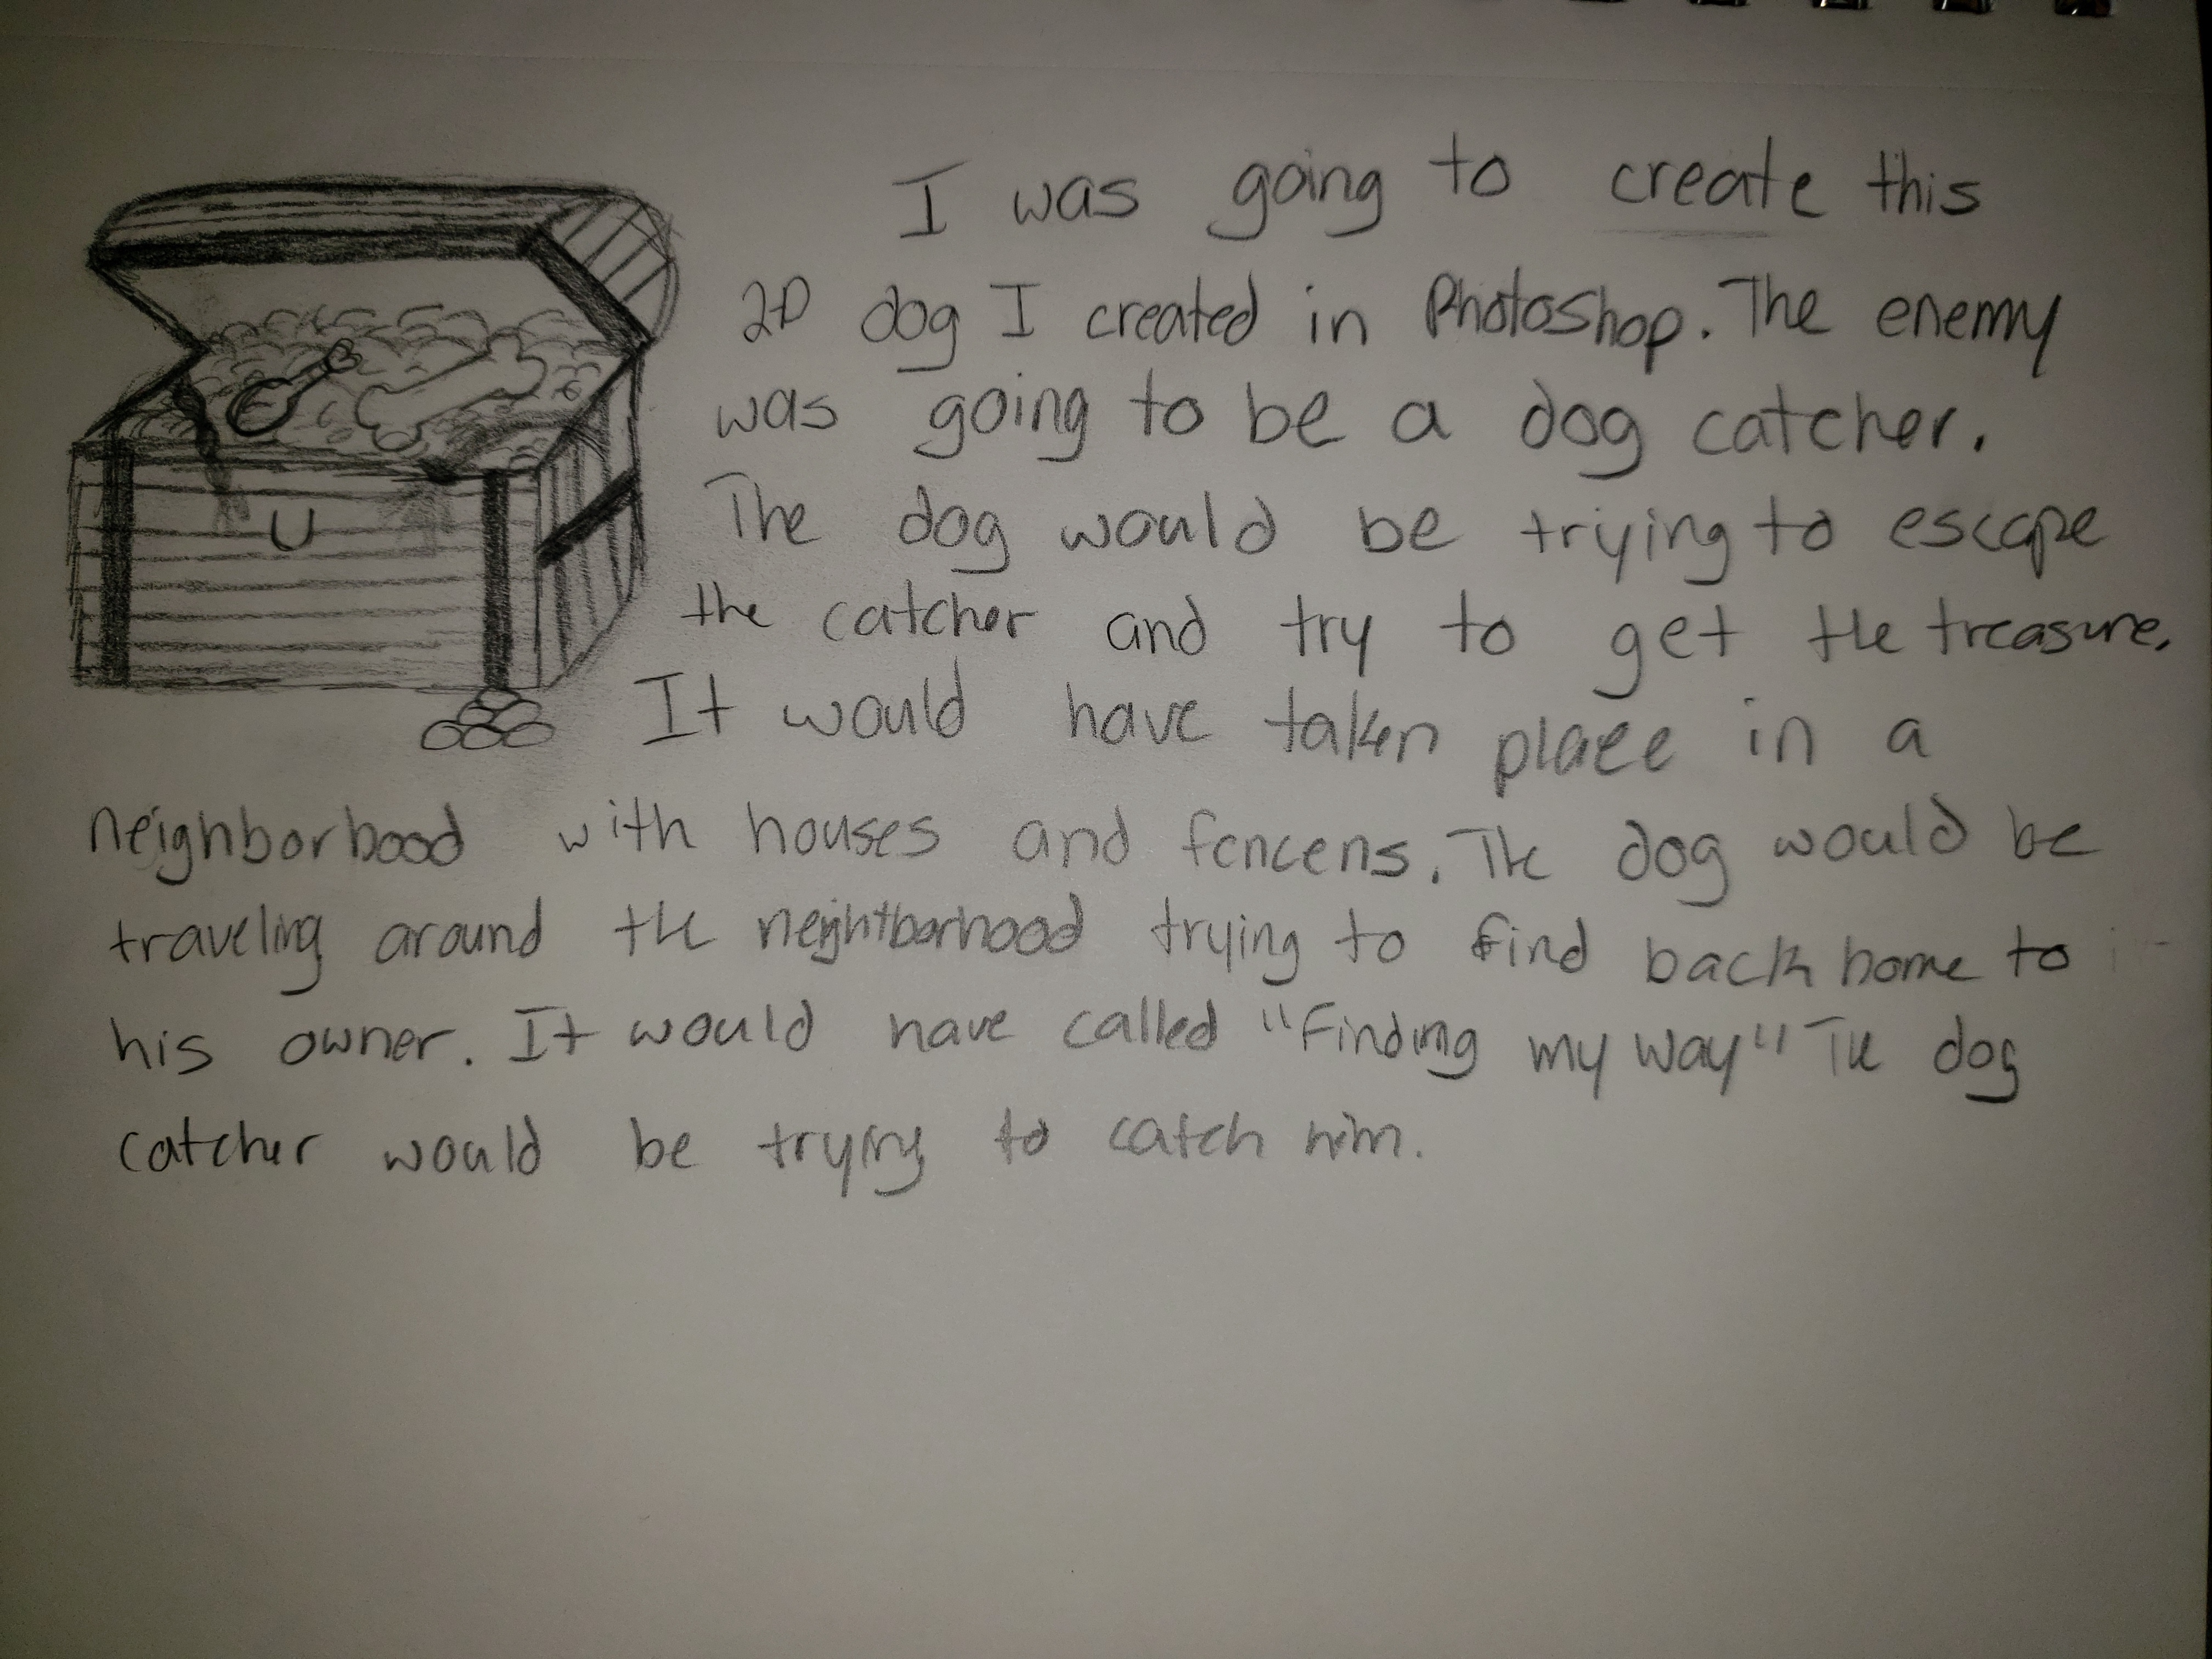 I was going to create this
2D dog I created in Photoshop. The enemy
was going to be a dog catcher.
The dog would be trying to escape
the catcher and try to get the treasure.
It would have taken place in a
neighborhood with houses and fencens. The dog would be
traveling around the neightborhood trying to find back home to
his owner. It would have called "Finding my way" The dog
catcher would be trying to catch him.